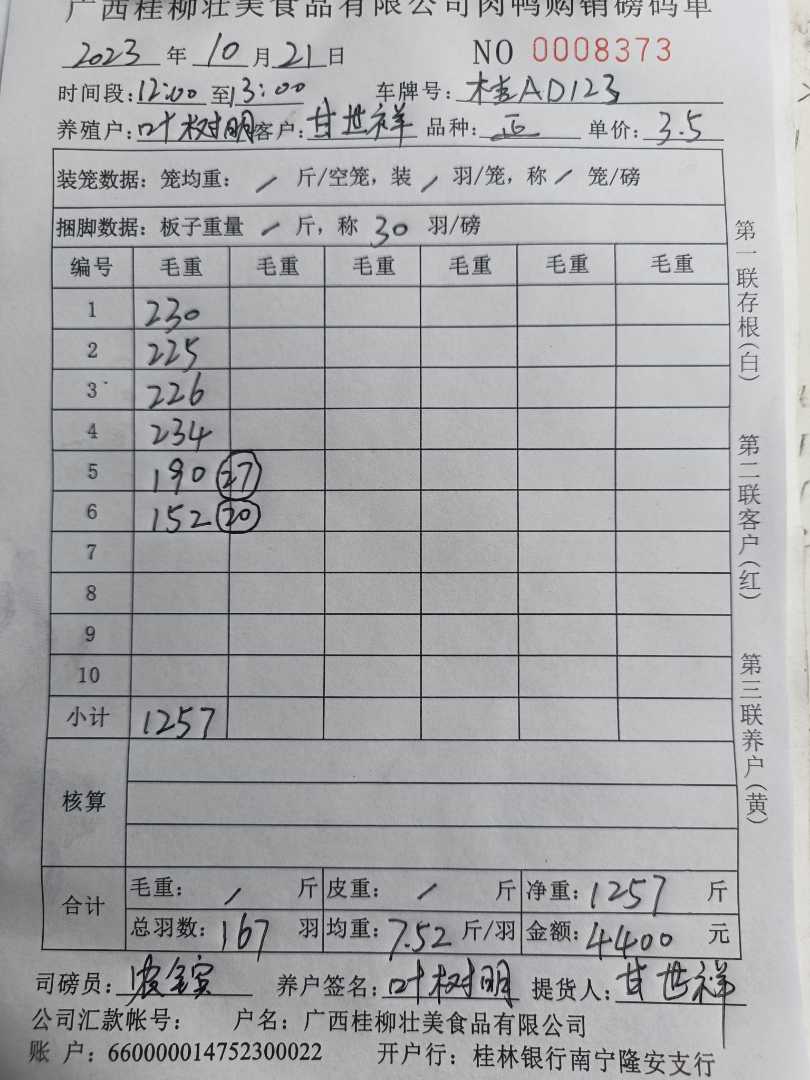 广西桂柳壮美食品有限公司肉鸭购销磅码单
2023 年 10 月 21 日 NO 0008373
时间段:12:00 至 13:00 车牌号:桂AD123
养殖户:叶树明 客户:甘世祥 品种:正 单价:3.5
装笼数据:笼均重: / 斤/空笼,装 / 羽/笼,称 / 笼/磅
捆脚数据:板子重量 / 斤,称 30 羽/磅
编号 毛重 毛重 毛重 毛重 毛重 毛重
1 230
2 225
3 226
4 234
5 190 27
6 152 20
7
8
9
10
小计 1257
核算
合计 毛重: / 斤 皮重: / 斤 净重:1257 斤
总羽数:167 羽 均重:7.52 斤/羽 金额:4400 元
司磅员: 养户签名:叶树明 提货人:甘世祥
公司汇款帐号: 户名:广西桂柳壮美食品有限公司
账 户:660000014752300022 开户行:桂林银行南宁隆安支行
第一联存根(白)
第二联客户(红)
第三联养户(黄)